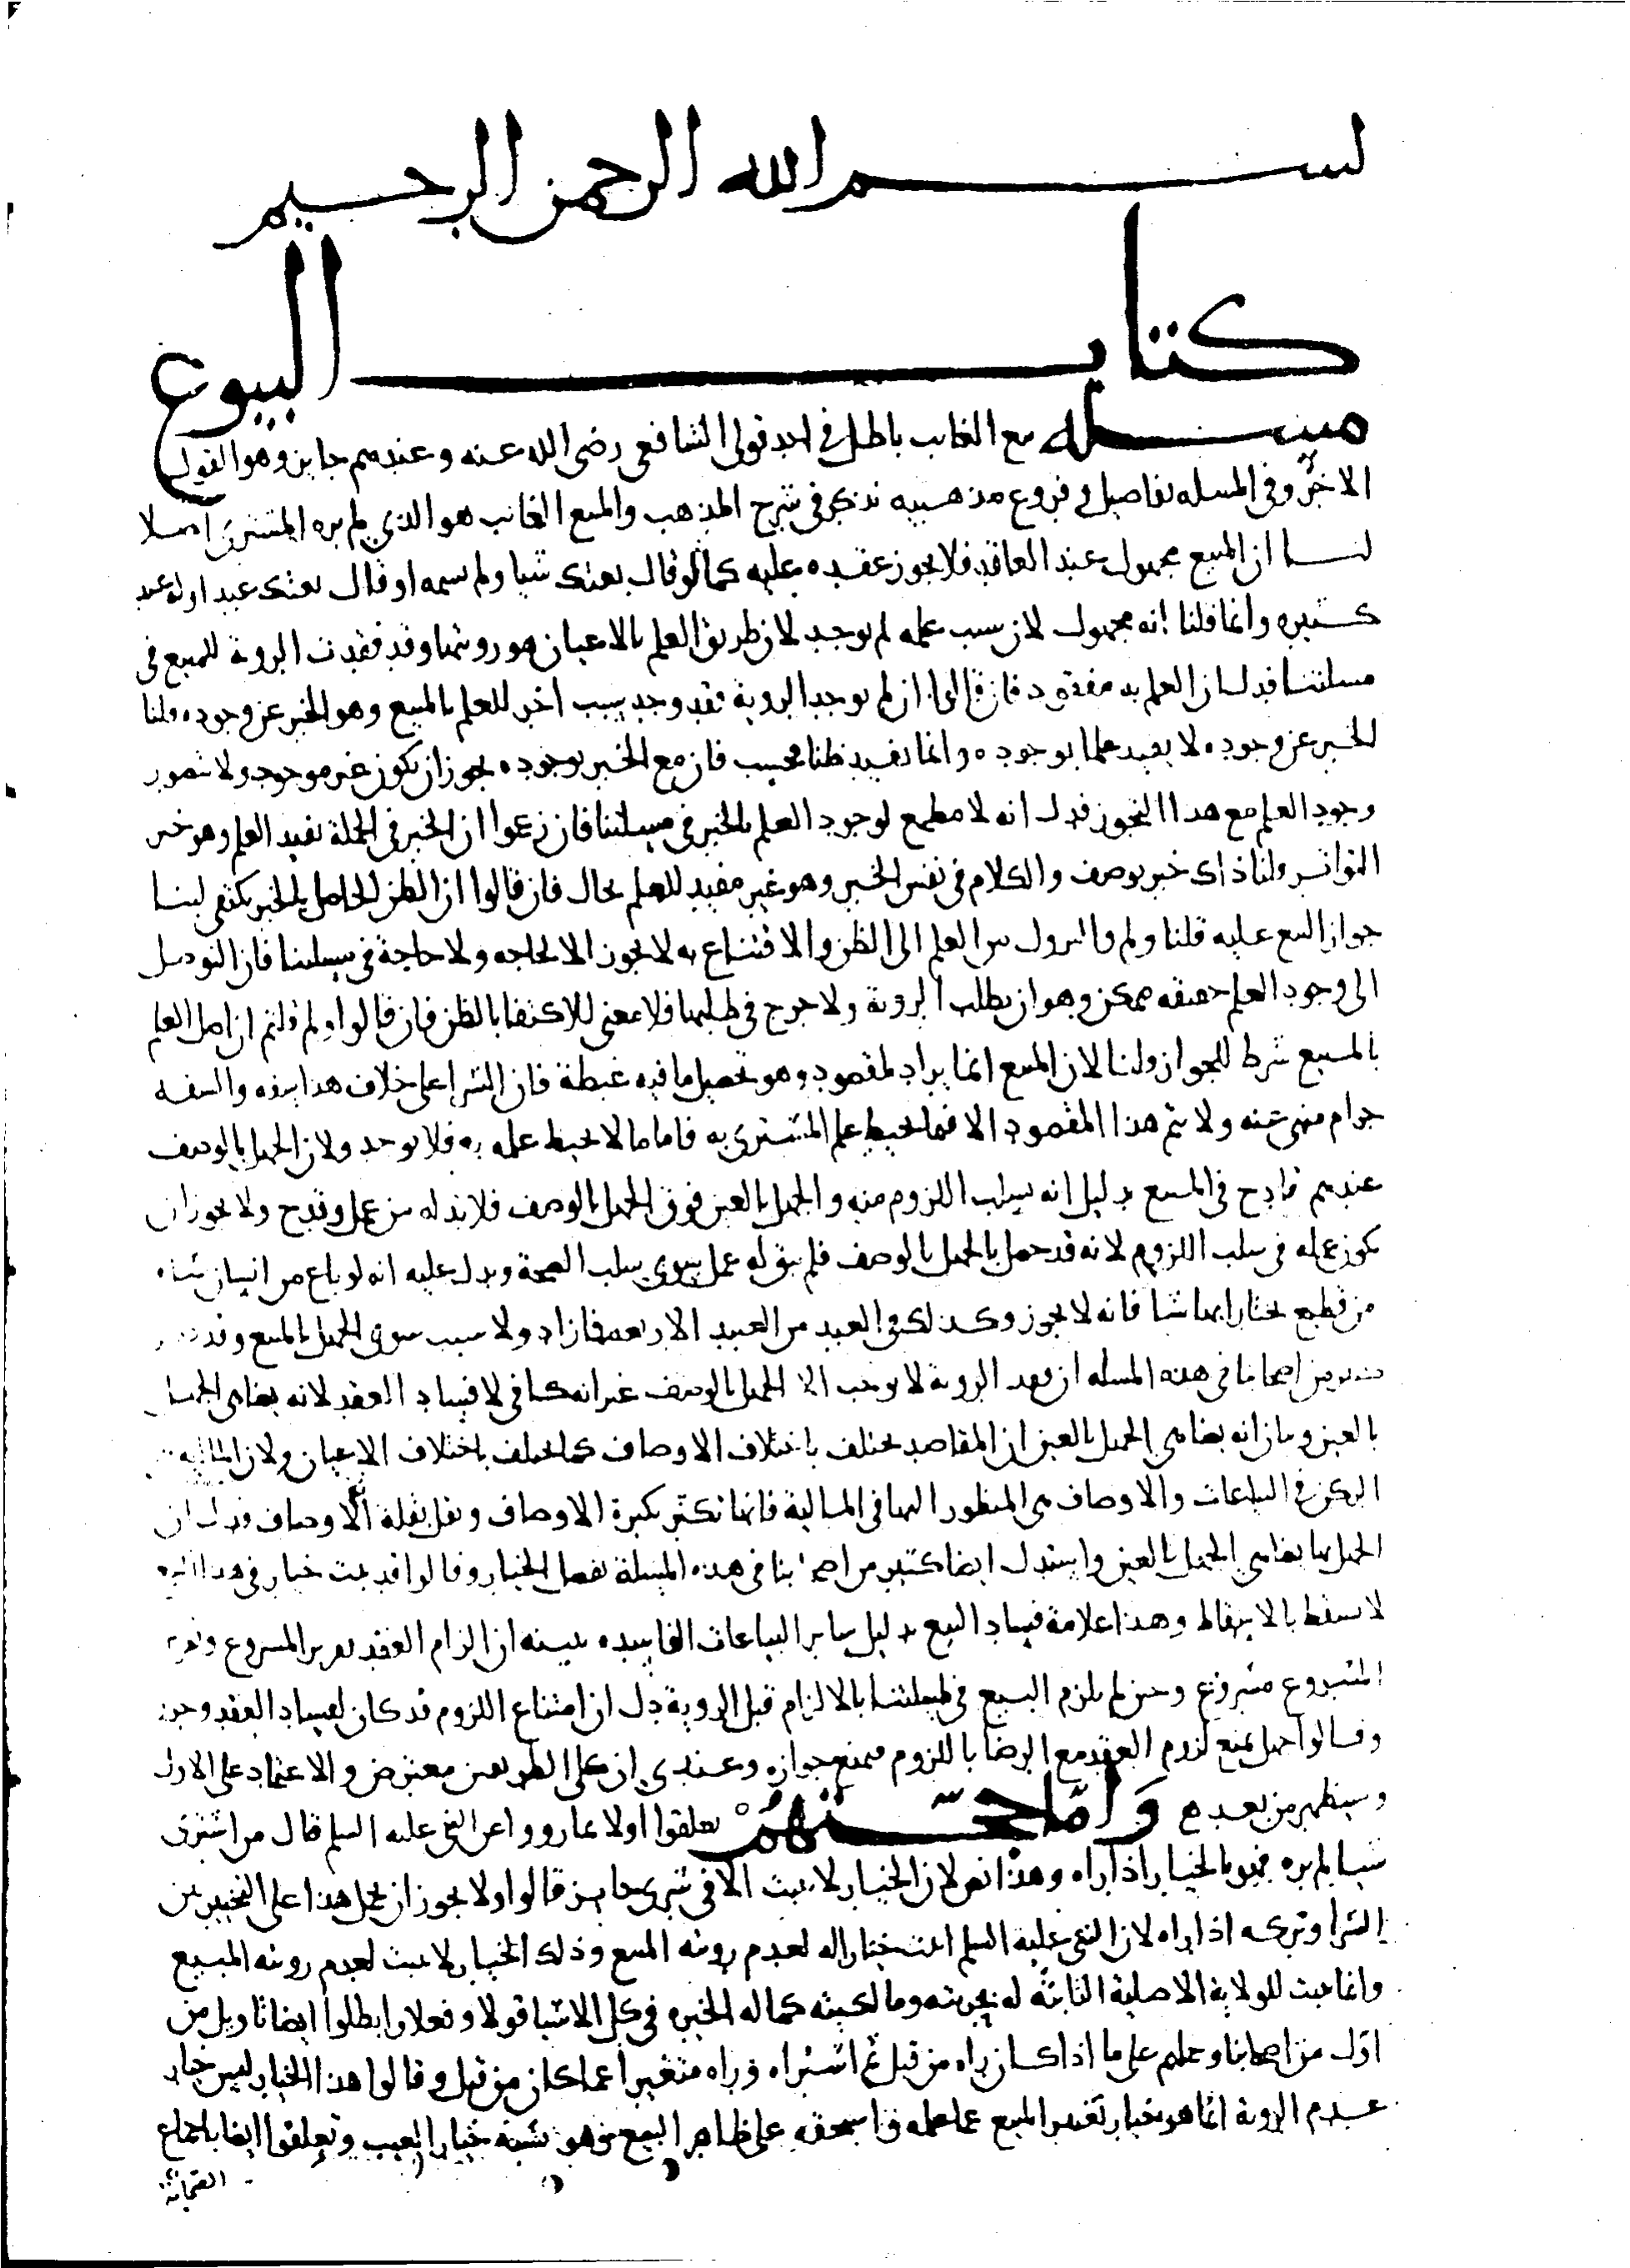 بسم الله الرحمن الرحيم
كتاب البيوع
مسله بيع الغايب باطل في احد قولى الشافعي رضى الله عنه وعندهم جايز وهو القول
الاخر وفي المسله تفاصيل وفروع مذهبيه تذكر في شرح المذهب والمبيع الغائب هو الذي لم يره المشترى اصلا
لنا ان المبيع مجهول عند العاقد فلا يجوز عقده عليه كما لو قال بعتك شيا ولم يسمه او قال بعتك عبد اوله عبيد
كثيره وانما قلنا انه مجهول لان سبب علمه لم يوجد لان طريق العلم بالاعيان هو رويتها وقد فقدت الروية للمبيع في
مسلتنا فدل ان العلم به مفقود فان قالوا ان لم يوجد الروية فقد وجد سبب اخر للعلم بالمبيع وهو الخبر عن وجوده قلنا
الخبر عن وجوده لا يفيد علما بوجوده وانما يفيد ظنا فحسب فان مع الخبر بوجوده يجوز ان يكون غير موجود ولا يتصور
وجود العلم مع هذا التجوز فدل انه لا مطمع لوجود العلم بالخبر في مسلتنا فان زعموا ان الخبر في الجملة يفيد العلم وهو خبر
التواتر قلنا ذاك خبر بوصف والكلام في نفس الخبر وهو غير مفيد للعلم بحال فان قالوا ان الظن الحاصل بالخبر يكتفى لبنا
جواز البيع عليه قلنا ولم والنزول من العلم الى الظن والاقتناع به لا يجوز الا لحاجه ولا حاجة في مسلتنا فان التوصل
الى وجود العلم حقيقه ممكن وهو ان يطلب الروية ولا حرج في طلبها فلا معنى للاكتفا بالظن فان قالوا ولم قلتم ان اصل العلم
بالمبيع شرط للجواز قلنا لان المبيع انما يراد لمقصود وهو تحصيل ما فيه غبطة فان الشرا على خلاف هذا سفه والسفه
حرام منهى عنه ولا يتم هذا المقصود الا فيما يحيط علم المشترى به فاما ما لا يحيط علمه به فلا يوجد ولان الجهل بالوصف
عندهم قادح في المبيع بدليل انه يسلب اللزوم منه والجهل بالعين فوق الجهل بالوصف فلا بد له من عمل وقدح ولا يجوز ان
يكون عمله في سلب اللزوم لانه قد حصل بالجهل بالوصف فلم يبق له عمل سوى سلب الصحة ويدل عليه انه لو باع من انسان شاه
من قطيع يختار ايها شا فانه لا يجوز وكذلك في العبد من العبيد الاربعه فما زاد ولا سبب سوى الجهل بالمبيع وقد
من اصحابنا في هذه المسله ان فقد الروية لا يوجب الا الجهل بالوصف غير انه كافى لافساد العقد لانه يضاهى الجهل
بالعين وبيان انه يضاهى الجهل بالعين ان المقاصد تختلف باختلاف الاوصاف كما تختلف باختلاف الاعيان ولان المالية
الركن في البياعات والاوصاف هى المنظور اليها في المالية فانها تكثر بكثرة الاوصاف وتقل بقلة الاوصاف فدل ان
الجهل بها يضاهي الجهل بالعين واستدل ايضا كثير من اصحابنا في هذه المسلة بفصل الخيار وقالوا قد ثبت خيار في هذا البيع
لا يسقط بالاسقاط وهذا علامة فساد البيع بدليل ساير البياعات الفاسده يبينه ان الزام العقد تقرير المشروع وتقرير
المشروع مشروع وحين لم يلزم البيع في مسلتنا بالالزام قبل الروية دل ان امتناع اللزوم قد كان لفساد العقد
وقالوا جهل يمنع لزوم العقد مع الرضا باللزوم فيمنع جوازه وعندي ان كلى الطريقين معترض والاعتماد على الاول
وسيظهر من بعد هم واما حجتهم تعلقوا اولا بما رووا عن النبي عليه السلم قال من اشترى
شيا لم يره فهو بالخيار اذا راه وهذا نص لان الخيار لا يثبت الا في شرى جايز قالوا ولا يجوز ان يحمل هذا على التخيير بين
الشرا وتركه اذا راه لان النبي عليه السلم اثبت خيارا له لعدم رويته المبيع وذلك الخيار لا يثبت لعدم رويته المبيع
وانما يثبت للولاية الاصلية الثابتة له بحريته ومالكيته كما له الخيره في كل الاشيا قولا وفعلا وابطلوا ايضا تاويل من
اول من اصحابنا وحملهم على ما اذا كان راه من قبل ثم اشتراه فراه متغيرا عما كان من قبل وقالوا هذا الخيار ليس خيار
عدم الروية انما هو خيار تغير المبيع عما علمه على ظاهر البيع وهو شبه خيار العيب وتعلقوا ايضا باجماع
الصحابة